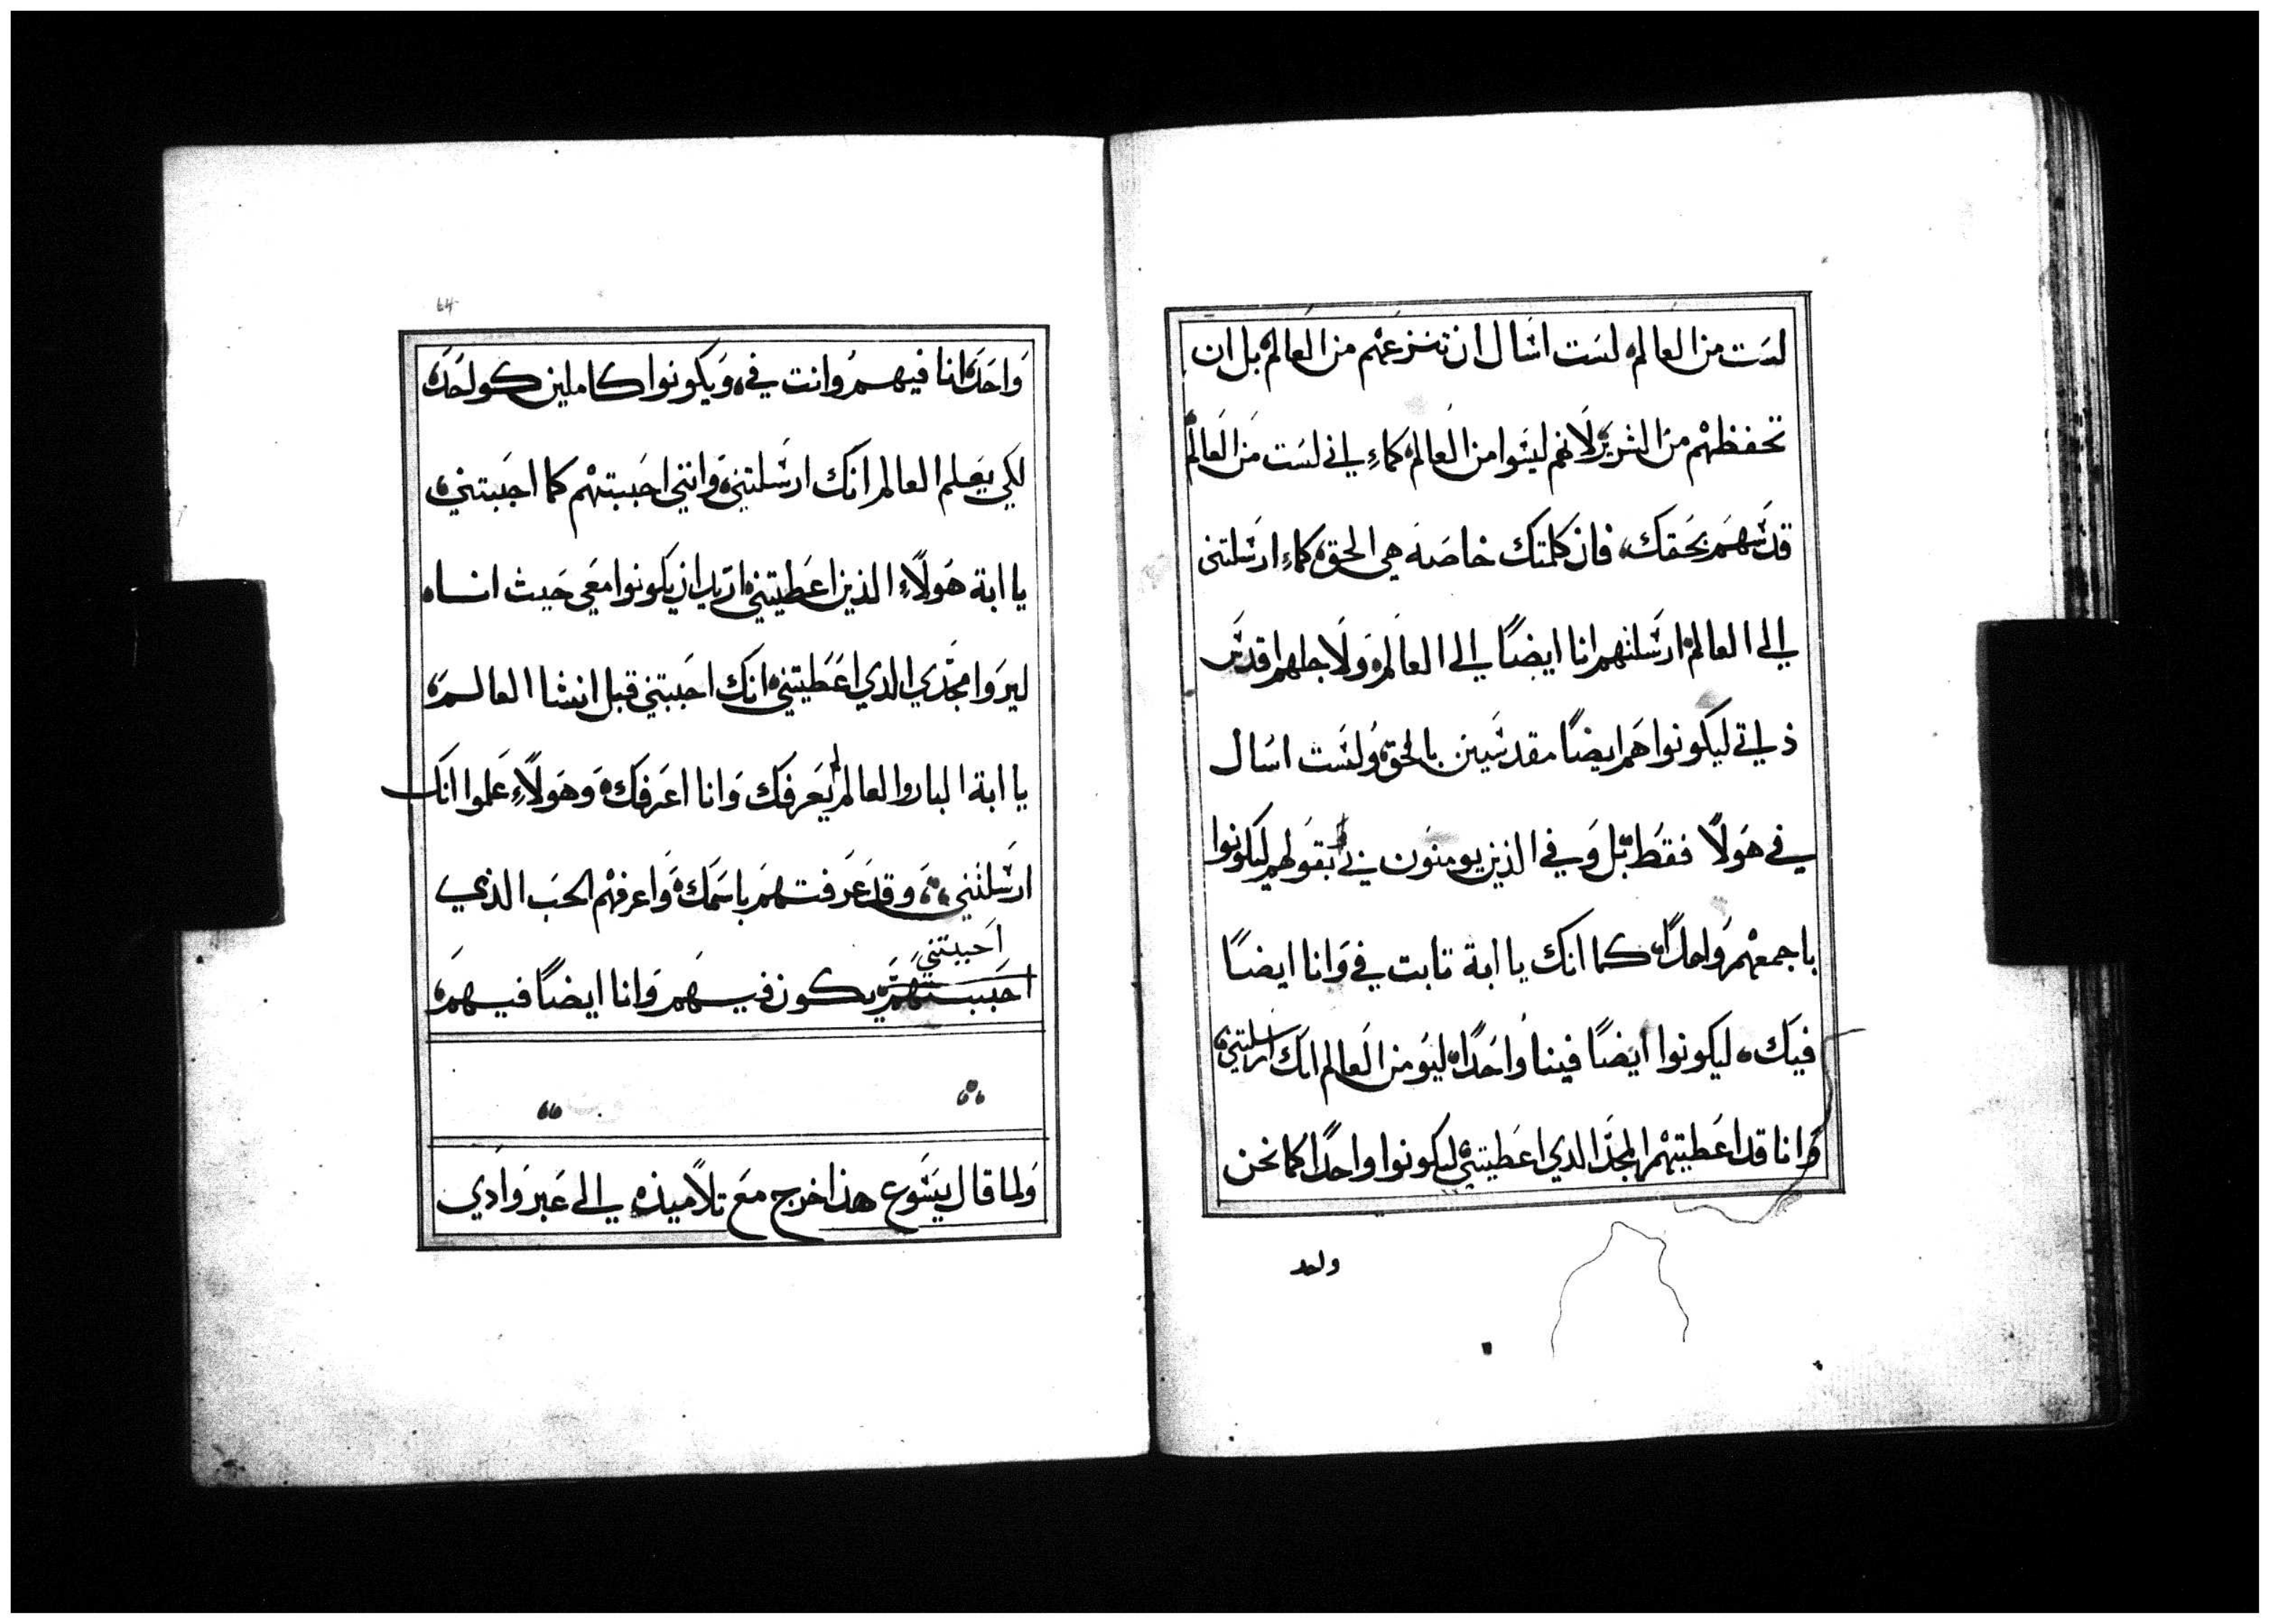 لست من العالم لست اسال ان تنزعهم من العالم بل ان
تحفظهم من الشرير لانهم ليسوا من العالم كماء اني لست من العالم
قدسهم بحقك فان كلمتك خاصة هي الحق كماء ارسلتني
الي العالم ارسلتهم انا ايضًا الي العالم ولاجلهم اقدس
ذاتي ليكونوا هم ايضًا مقدسين بالحق ولست اسال
في هولاً فقط بل وفي الذين يومنون بي بقولهم ليكونوا
باجمعهم واحدًا كما انك يا ابة ثابت في وانا ايضًا
فيك ليكونوا ايضًا فينا واحدًا ليومن العالم انك ارسلتني
وانا قد اعطيتهم المجد الدي اعطيتني ليكونوا واحدًا كما نحن
واحد
64
واحد انا فيهم وانت في ويكونوا كاملين كواحد
لكي يعلم العالم انك ارسلتني وانني احببتهم كما احببتني
يا ابة هولاء الذين اعطيتني اريد ان يكونوا معي حيث انا
ليروا مجدي الدي اعطيتني انك احببتني قبل انشا العالم
يا ابة البار والعالم لم يعرفك وانا اعرفك وهولاء علموا انك
ارسلتني وقد عرفتهم باسمك واعرفهم الحب الذي
احببتني
احببتهم يكون فيهم وانا ايضًا فيهم
ولما قال يسوع هذا خرج مع تلاميذه الي عبر وادي